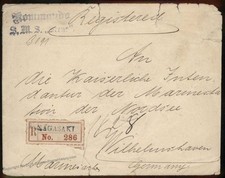 Kommando
S.M.S.
Registered
An
die Kaiserliche Inten
dantur der Marinesta
tion der Nordsee
Wilhelmshaven
Germany
NAGASAKI
R No. 286